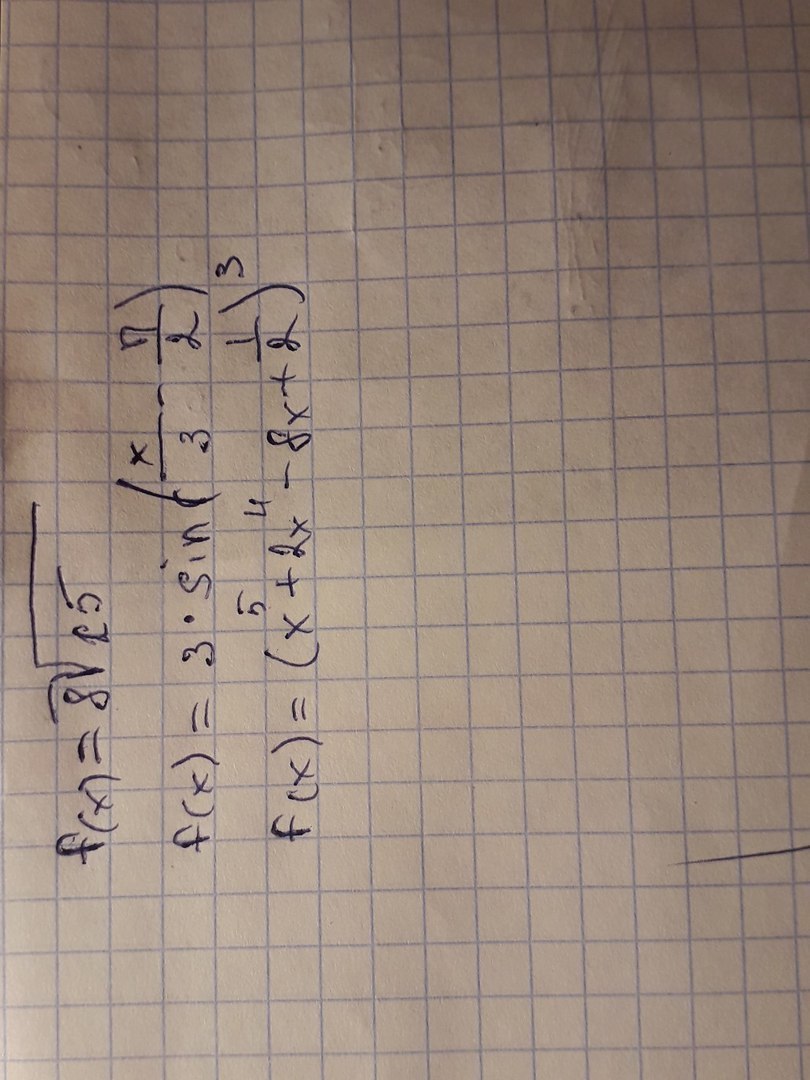 f(x) = 8√x5
f(x) = 3 · sin(x/3 - π/2)
f(x) = (x⁵ + 2x⁴ - 8x + 1/2)³